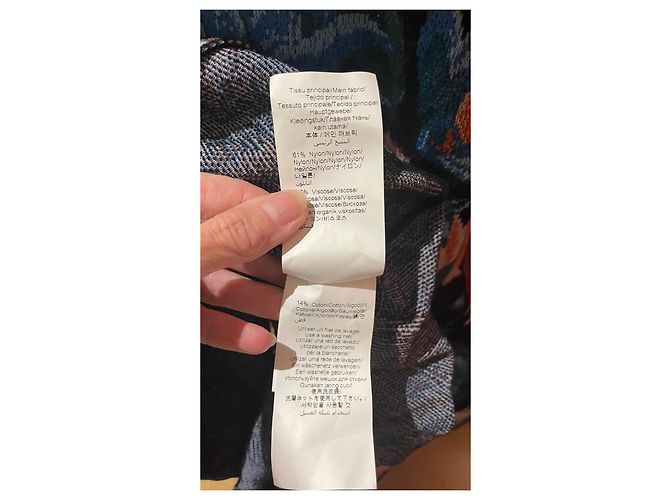 Tissu principal/Main fabric/
Tejido principal /
Tessuto principale/Tecido principal/
Hauptgewebe/
Kledingstuk/Главная ткань/
kain utama/
本体 / 메인 패브릭
النسيج الرئيسي
61% Nylon/Nylon/Nylon/
Nylon/Nylon/Nylon/Nylon/
Нейлон/Nylon/ナイロン/
나일론/
النايلون
% Viscose/Viscose/
Viscosa/Viscosa/
Viscose/Вискоза/
organik viskositas/
비스코스
14% Coton/Cotton/Algodon/
Cotone/Algodão/Baumwolle/
Katoen/Хлопок/Kapas/綿
قطن
Utiliser un filet de lavage/
Use a washing net/
Utilizar una red de lavado/
Utilizzare un sacchetto
per la biancheria/
Utilizar uma rede de lavagem/
Ein waschenetz verwenden/
Een wasnetje gebruiken/
Используйте мешок для стирки
Gunakan jaring cuci/
使用洗衣袋/
洗濯ネットを使用して下さい。/
세탁망을 사용할 것
استخدام شبكة الغسيل